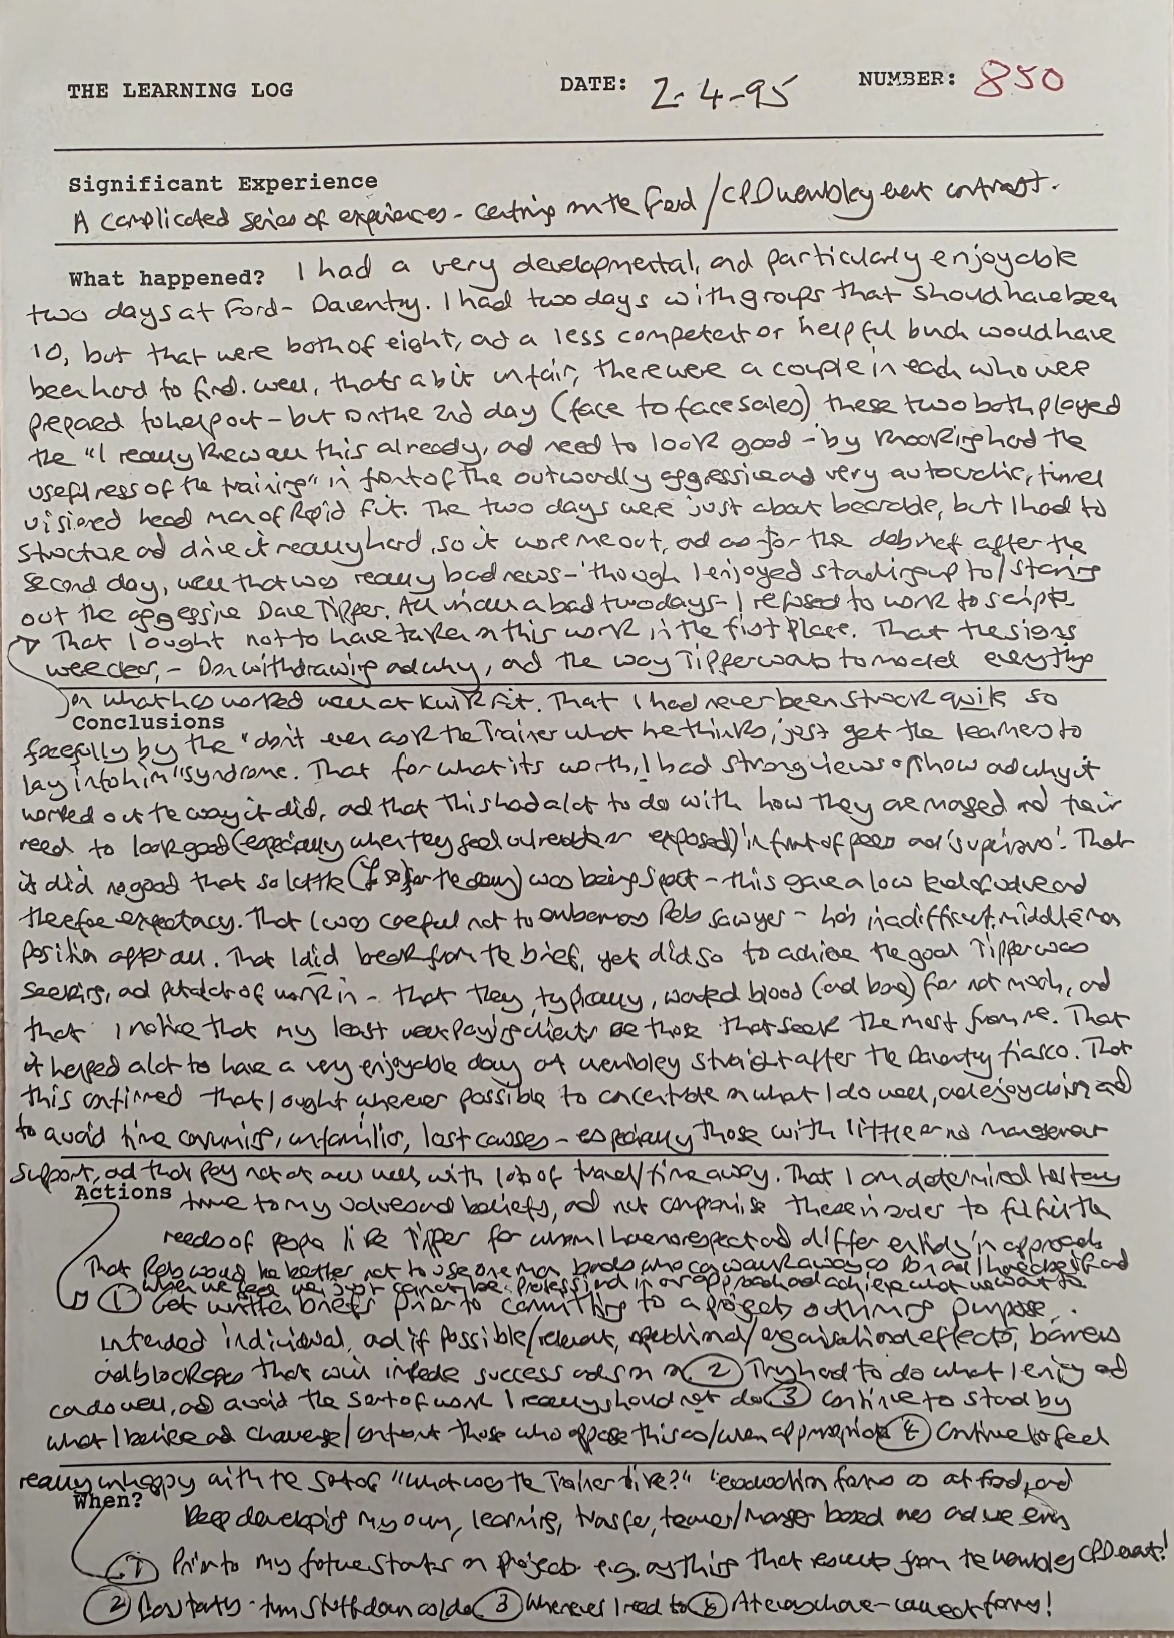 THE LEARNING LOG DATE: 2-4-95 NUMBER: 850
Significant Experience
A complicated series of experiences - centring on the Ford / CPD Wembley event contrast.
What happened? I had a very developmental, and particularly enjoyable
two days at Ford - Daventry. I had two days with groups that should have been
10, but that were both of eight, and a less competent or helpful bunch would have
been hard to find. Well, thats a bit unfair, there were a couple in each who were
prepared to help out - but on the 2nd day (face to face sales) these two both played
the "I really knew all this already, and need to look good - by knocking hard the
usefulness of the training" in front of the outwardly aggressive and very autocratic, tunnel
visioned head man of Rapid Fit. The two days were just about bearable, but I had to
structure and drive it really hard, so it wore me out, and as for the debrief after the
second day, well that was really bad news - 'though I enjoyed standing up to/staring
out the aggressive Dave Tipper. All in all a bad two days - I refused to work to scripts.
That I ought not to have taken on this work in the first place. That the signs
were clear, - Don withdrawing and why, and the way Tipper wants to model everything
on what has worked well at Kwik Fit. That I had never been struck quite so
Conclusions
forcefully by the "don't even ask the Trainer what he thinks, just get the learners to
lay into him" syndrome. That for what its worth, I had strong views of how and why it
worked out the way it did, and that this had a lot to do with how they are managed and their
need to look good (especially when they feel vulnerable or exposed) in front of peers and 'superiors'. That
it did no good that so little (for the day) was being spent - this gave a low level of value and
therefore expectancy. That I was careful not to embarrass Rob Sawyer - he's in a difficult, middle man
position after all. That I did break from the brief, yet did so to achieve the goal Tipper was
seeking, and put a lot of work in - that they, typically, wanted blood (and bone) for not much, and
that I notice that my least well paying clients are those that seek the most from me. That
it helped a lot to have a very enjoyable day at Wembley straight after the Daventry fiasco. That
this confirmed that I ought wherever possible to concentrate on what I do well, and enjoy doing and
to avoid time consuming, unfamiliar, lost causes - especially those with little or no management
support, and that pay not at all well, with lots of travel/time away. That I am determined to stay
Actions true to my values and beliefs, and not compromise these in order to fulfil the
needs of people like Tipper for whom I have no respect and differ entirely in approach.
That Rob would be better not to use one man bands who can walk away as Don and I have
when we feel we just cannot be professional in our approach and achieve what we want to
① Get written briefs prior to committing to a project, outlining purpose,
intended individual, and if possible/relevant, organisational effects, barriers
and blockages that will impede success and so on ② Try hard to do what I enjoy and
can do well, and avoid the sort of work I really should not do ③ Continue to stand by
what I believe and challenge/confront those who oppose this as/when appropriate ④ Continue to feel
really unhappy with the sort of "What was the Trainer like?" evaluation forms as at Ford, and
When? keep developing my own, learning, transfer, learner/manager based ones
① Prior to my future starts on projects e.g. anything that results from the Wembley CPD event!
② Constantly - turn stuff down ③ Wherever I need to